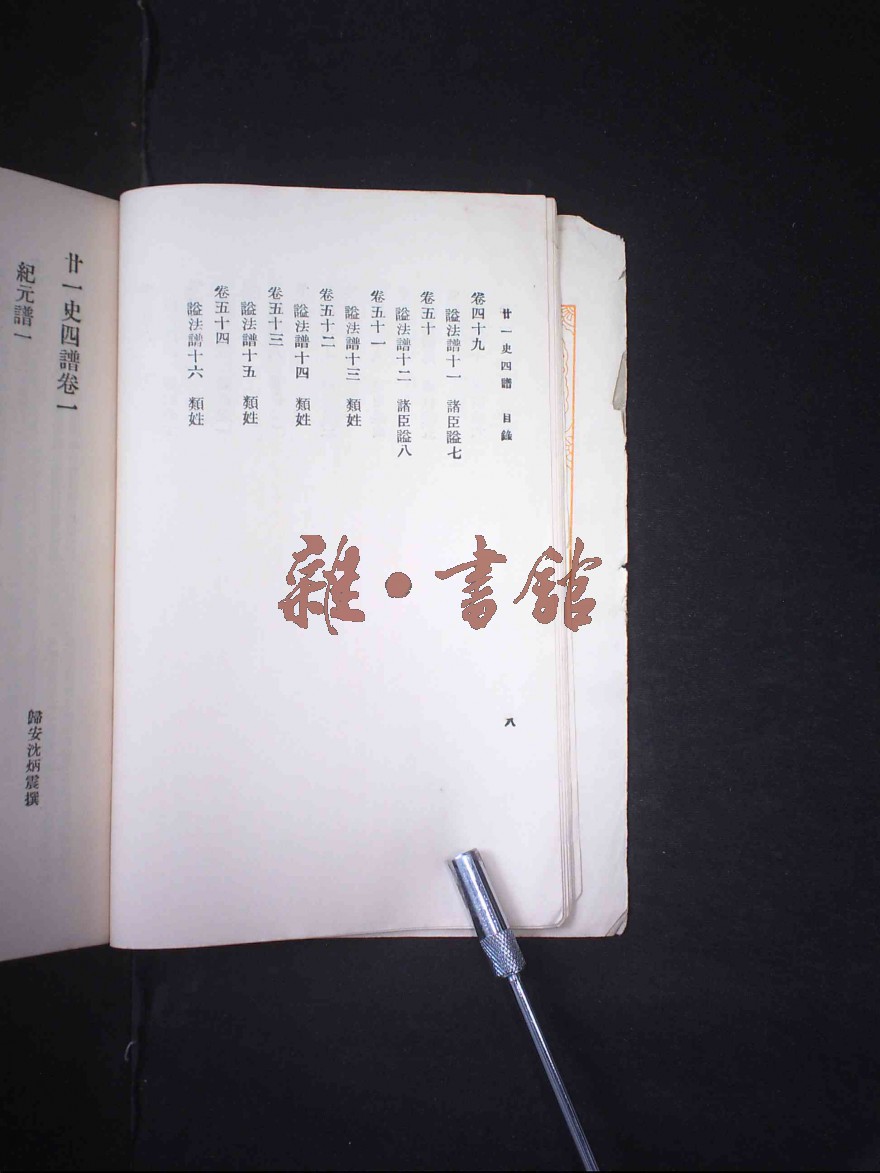 廿一史四譜　目錄
卷四十九
諡法譜十一　諸臣諡七
卷五十
諡法譜十二　諸臣諡八
卷五十一
諡法譜十三　類姓
卷五十二
諡法譜十四　類姓
卷五十三
諡法譜十五　類姓
卷五十四
諡法譜十六　類姓
八
廿一史四譜卷一
紀元譜一
歸安沈炳震撰
雜·書館